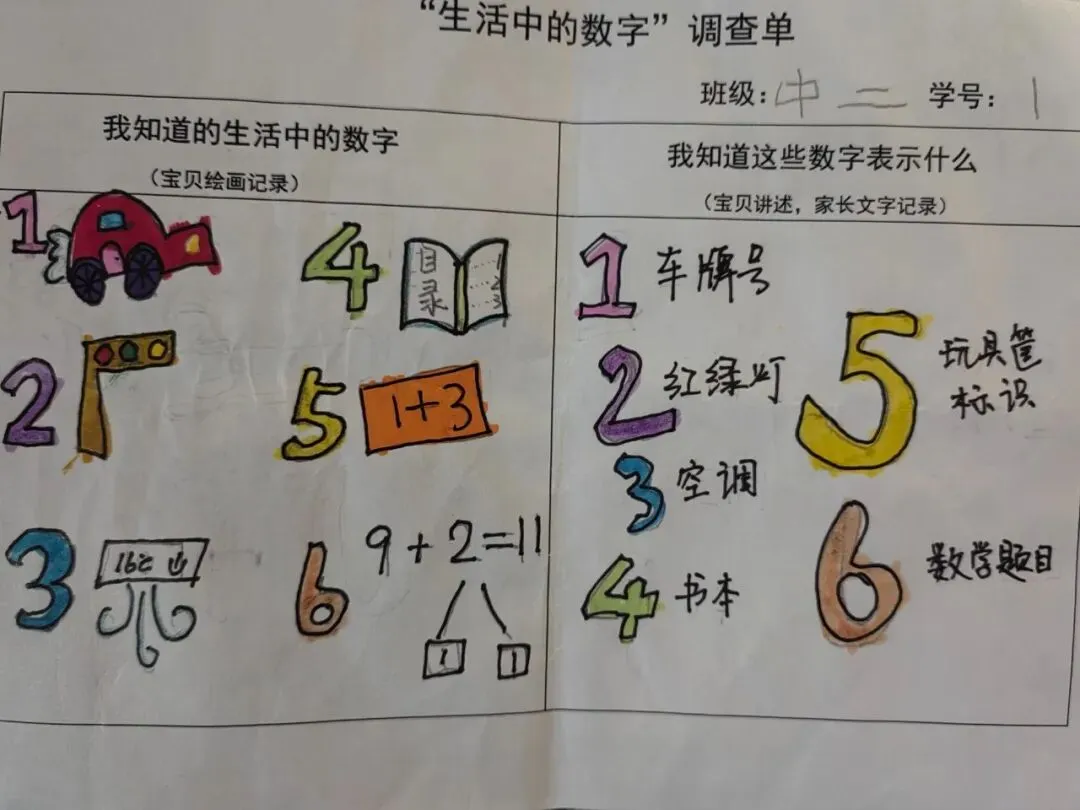 “生活中的数字”调查单
班级：中二 学号：1
我知道的生活中的数字
（宝贝绘画记录）
1
4
目录
1
2
3
2
5
1+3
3
16℃
6
9+2=11
1 1
我知道这些数字表示什么
（宝贝讲述，家长文字记录）
1 车牌号
2 红绿灯
3 空调
4 书本
5 玩具筐
标识
6 数学题目